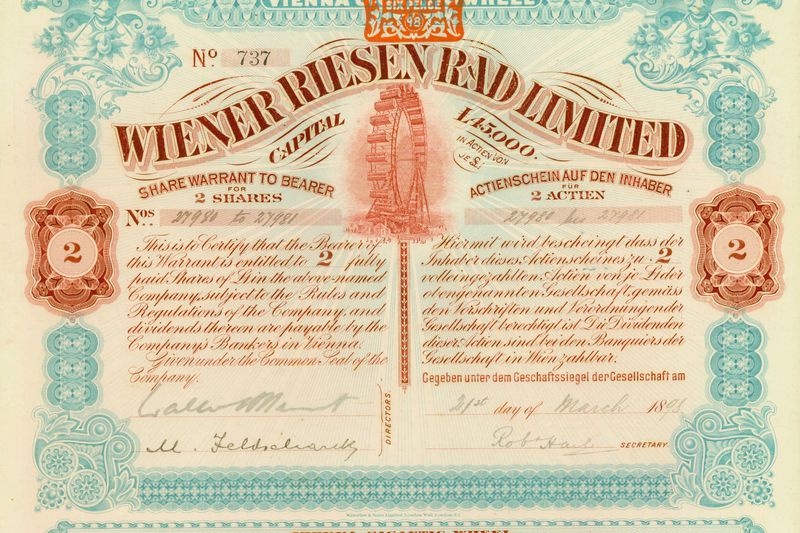 VIENNA WHEEL
SIX PENCE
Nº 737
WIENER RIESEN RAD LIMITED
CAPITAL £45,000.
IN ACTIEN VON
JE £1.
SHARE WARRANT TO BEARER
FOR
2 SHARES
ACTIENSCHEIN AUF DEN INHABER
FÜR
2 ACTIEN
Nos 27980 to 27981
27980 bis 27981
2
This is to Certify that the Bearer of
this Warrant is entitled to 2 fully
paid Shares of £1 in the above-named
Company, subject to the Rules and
Regulations of the Company, and
dividends thereon are payable by the
Company's Bankers in Vienna.
Given under the Common Seal of the
Company.
Hiermit wird bescheingt dass der
Inhaber dieses Actienscheines zu 2
vollengezahlten Actien von je £1 der
obengenannten Gesellschaft, gemäss
den Vorschriften und Verordnungen der
Gesellschaft berechtigt ist. Die Dividenden
dieser Action sind bei den Banquiers der
Gesellschaft in Wien zahlbar.
Gegeben unter dem Geschaftssiegel der Gesellschaft am
2
21st day of March 1898
DIRECTORS.
SECRETARY.
VIENNA GIGANTIC WHEEL